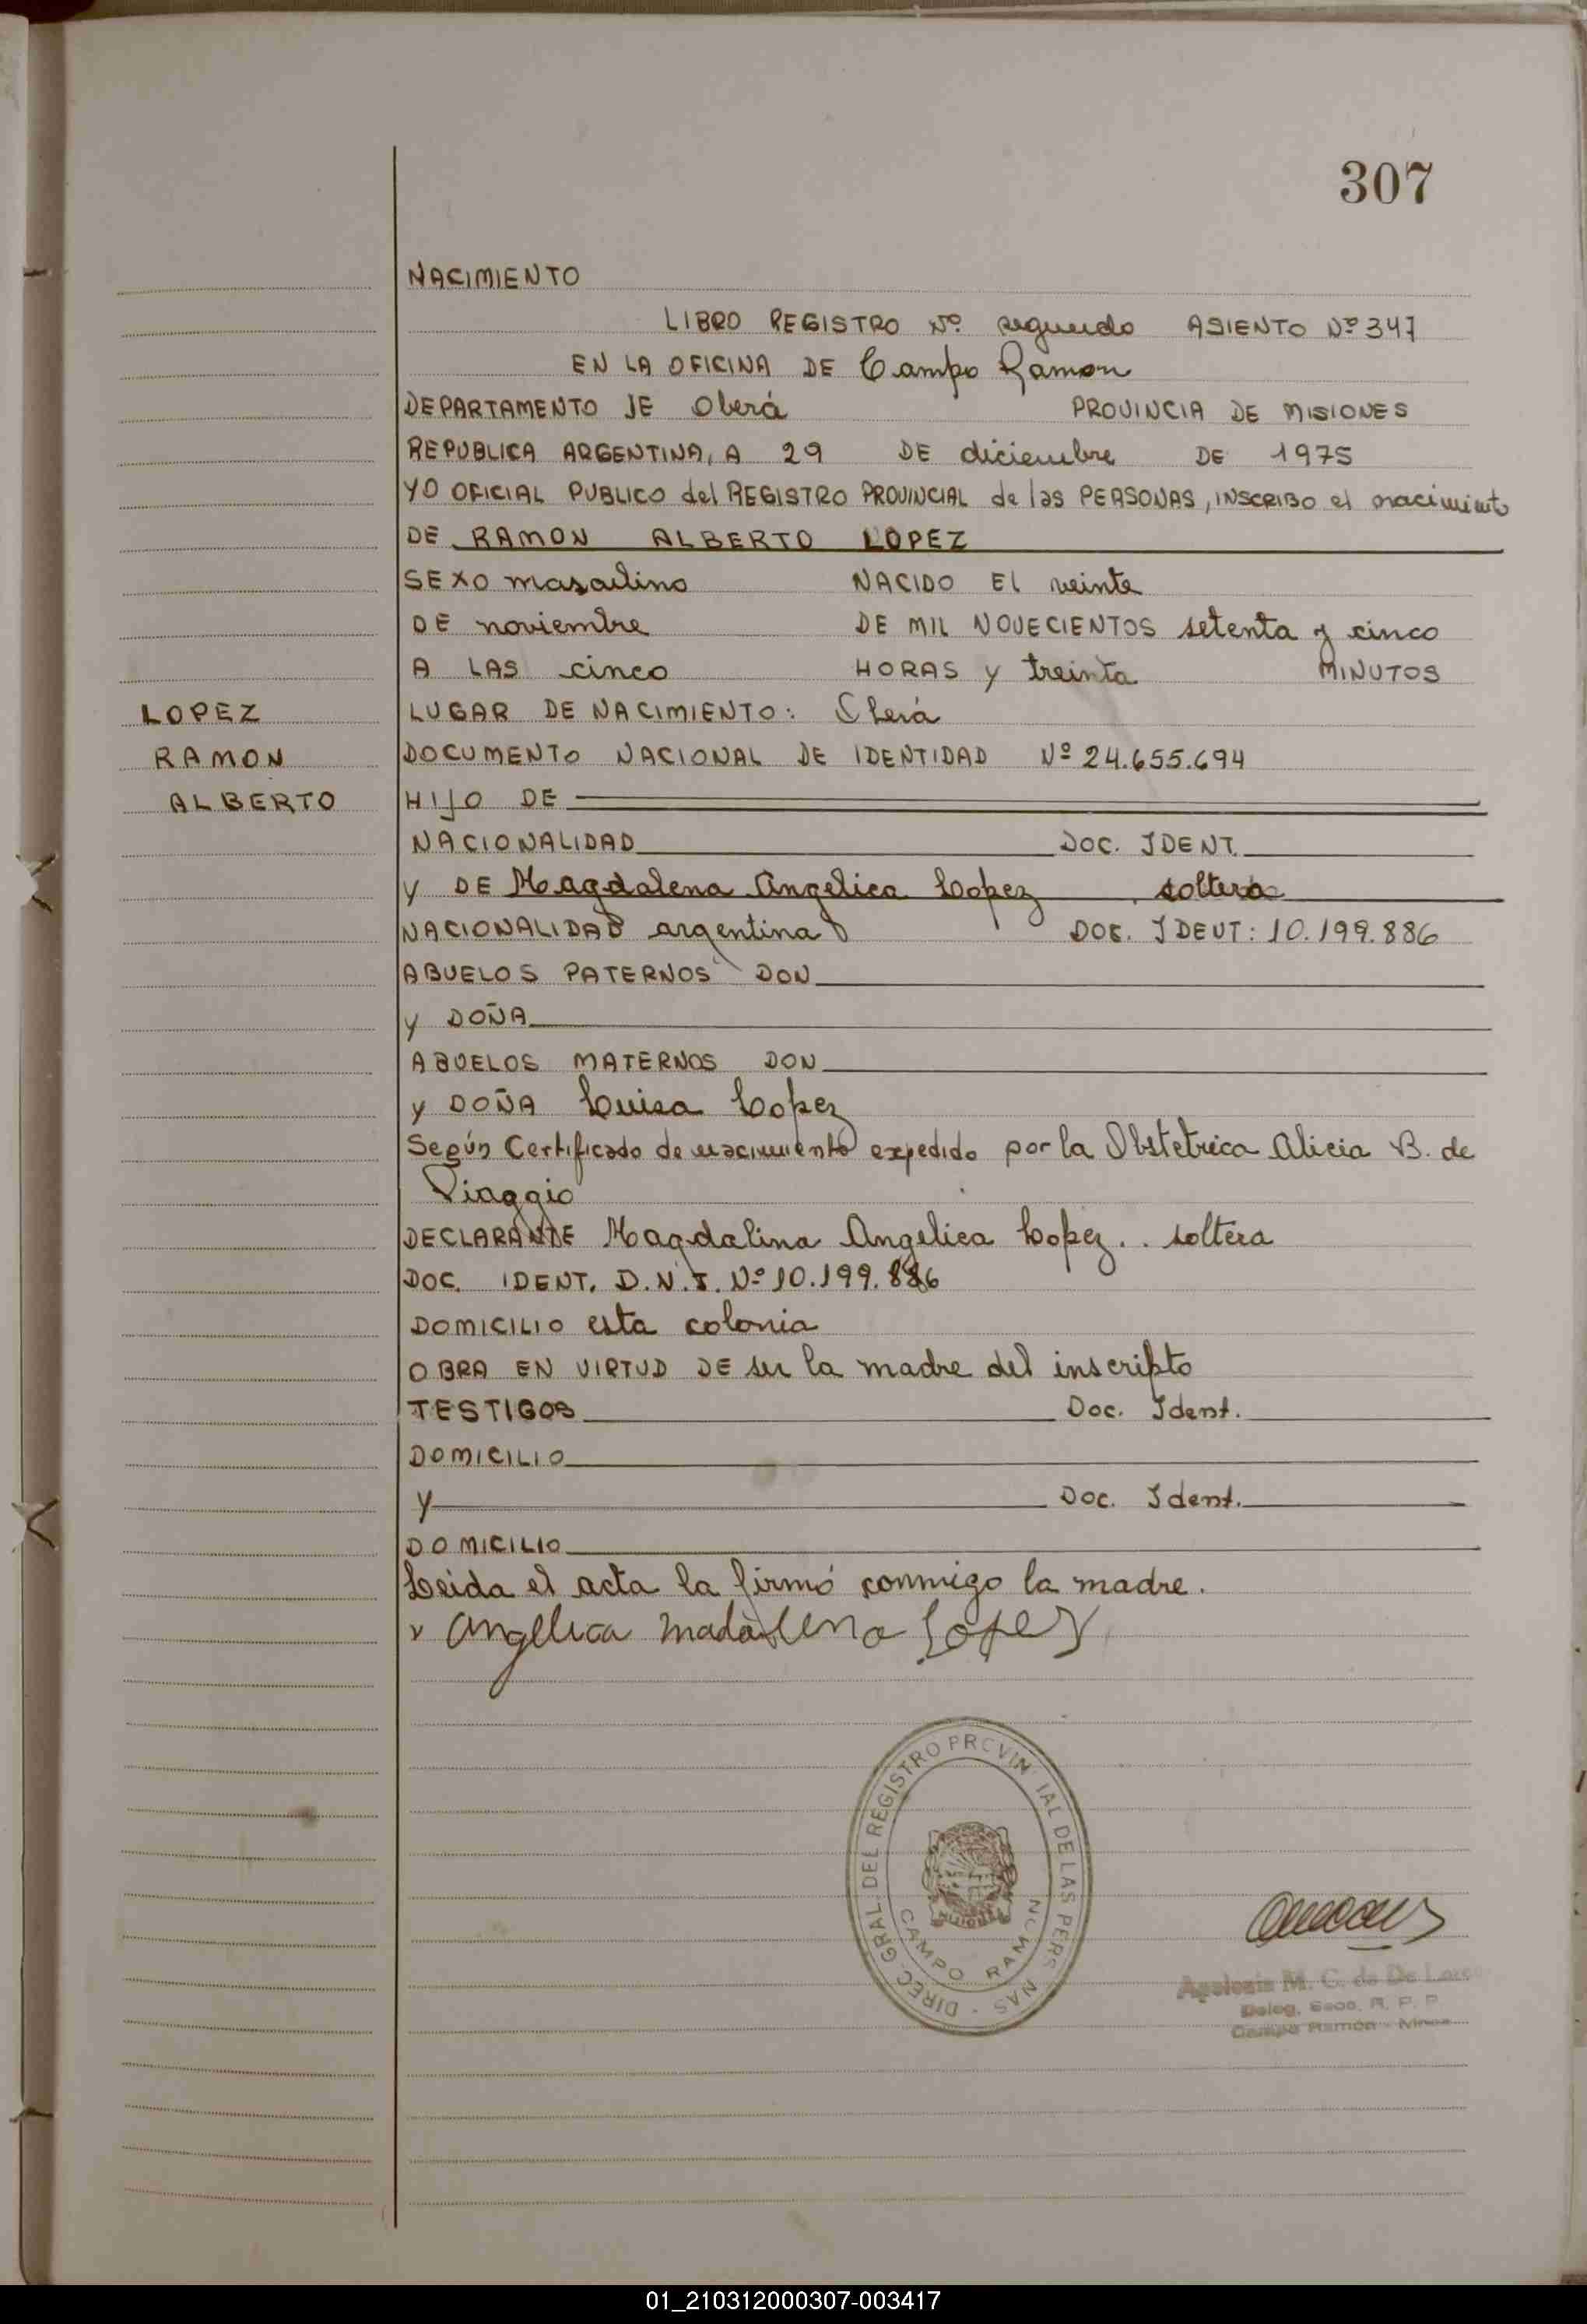 307
NACIMIENTO
LIBRO REGISTRO Nº segundo ASIENTO Nº 347
EN LA OFICINA DE Campo Ramon
DEPARTAMENTO DE Oberá PROVINCIA DE MISIONES
REPUBLICA ARGENTINA, A 29 DE diciembre DE 1975
YO OFICIAL PUBLICO del REGISTRO PROVINCIAL de las PERSONAS, INSCRIBO el nacimiento
DE RAMON ALBERTO LOPEZ
SEXO masculino NACIDO El veinte
DE noviembre DE MIL NOVECIENTOS setenta y cinco
A LAS cinco HORAS y treinta MINUTOS
LOPEZ LUGAR DE NACIMIENTO: Oberá
RAMON DOCUMENTO NACIONAL DE IDENTIDAD Nº 24.655.694
ALBERTO HIJO DE
NACIONALIDAD DOC. IDENT.
y DE Magdalena Angelica Lopez soltera
NACIONALIDAD argentina DOC. IDENT: 10.199.886
ABUELOS PATERNOS DON
y DOÑA
ABUELOS MATERNOS DON
y DOÑA Luisa Lopez
Según Certificado de nacimiento expedido por la Obstetrica Alicia B. de
Viaggio
DECLARANTE Magdalina Angelica Lopez.. soltera
DOC. IDENT. D.N.I. Nº 10.199.886
DOMICILIO esta colonia
OBRA EN VIRTUD DE ser la madre del inscripto
TESTIGOS Doc. Ident.
DOMICILIO
y Doc. Ident.
DOMICILIO
Leida el acta la firmó conmigo la madre.
Angelica madalena Lopez
DIREC. GRAL. DEL REGISTRO PROVINCIAL DE LAS PERSONAS
MISIONES
CAMPO RAMON
Apolonia M. C. de De Lara
Deleg. Secc. R. P. P.
Campo Ramón - Mnes.
01_210312000307-003417